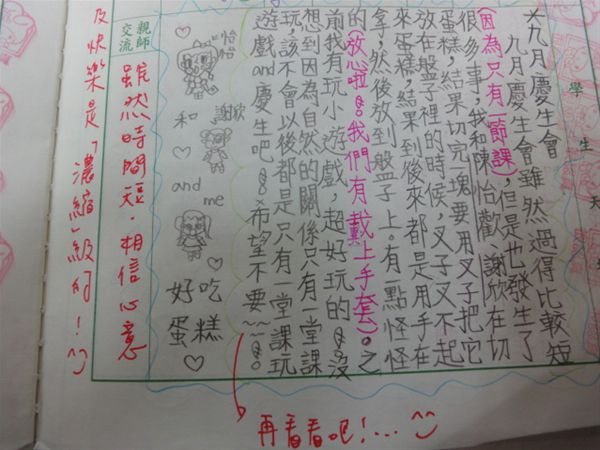 學生天
☆九月慶生會
九月慶生會雖然過得比較短
(因為只有一節課),但是也發生了
很多事,我和陳怡歡、謝欣在切
蛋糕,結果切完一塊要用叉子把它
放在盤子裡的時候,叉子叉不起
來蛋糕,結果到後來都是用手在
拿,然後放到盤子上。有點怪怪
的(放心啦!我們有戴上手套)。之
前我有玩小遊戲,超好玩的!沒
想到因為自然的關係只有一堂課
玩,該不會以後都是只有一堂課玩
遊戲and慶生吧!希望不要~~!
怡
和
謝欣
and
me
好吃
蛋糕
親師
交流
雖然時間短,相信心意
及快樂是「濃縮」級的!^^
再看看吧!...^^